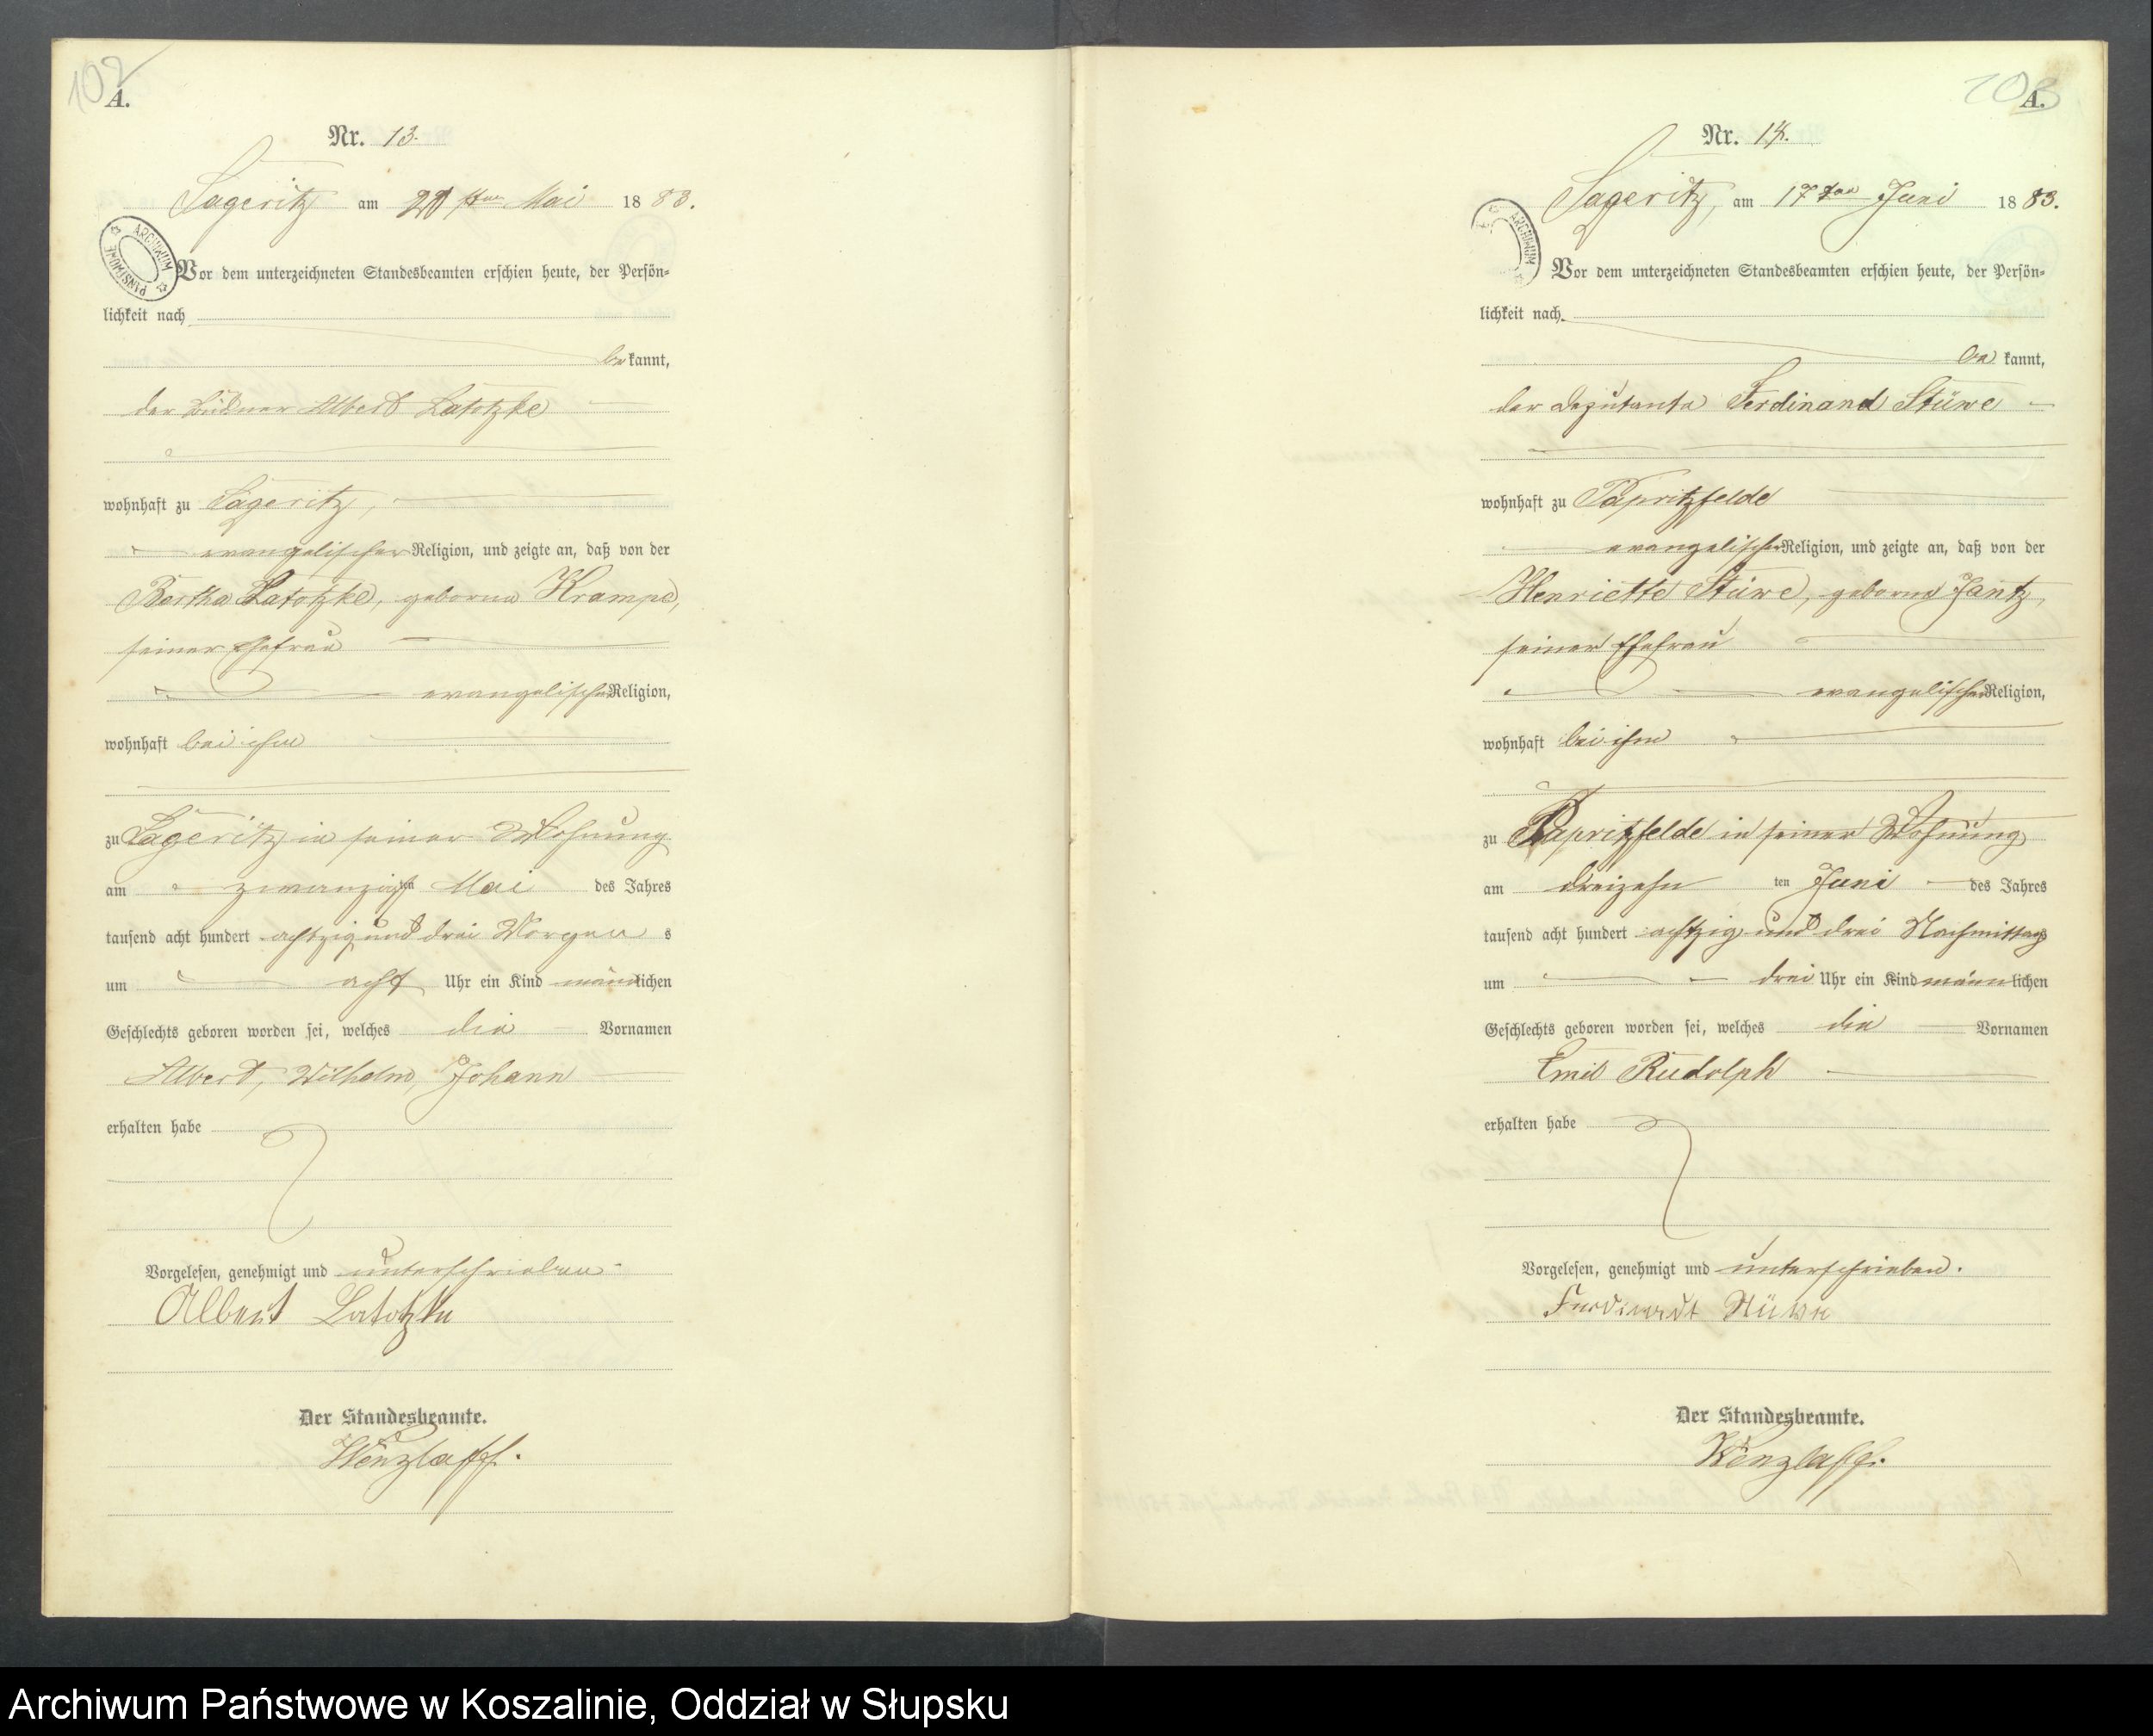 102
A.
Nr. 13.
Sageritz am 21 ten Mai 1883.
ARCHIWUM PAŃSTWOWE
Vor dem unterzeichneten Standesbeamten erschien heute, der Persön-
lichkeit nach
be kannt,
der Büdner Albert Latotzke
wohnhaft zu Sageritz,
evangelischer Religion, und zeigte an, daß von der
Bertha Latotzke, geborne Krampe,
seiner Ehefrau
evangelischer Religion,
wohnhaft bei ihm
zu Sageritz in seiner Wohnung
am zwanzigsten Mai des Jahres
tausend acht hundert achtzig und drei Morgens
um acht Uhr ein Kind männlichen
Geschlechts geboren worden sei, welches die Vornamen
Albert, Wilhelm, Johann
erhalten habe
Vorgelesen, genehmigt und unterschrieben.
Albert Latotzke
Der Standesbeamte.
Wenzlaff.
103
A.
Nr. 14.
Sageritz, am 17 ten Juni 1883.
ARCHIWUM
Vor dem unterzeichneten Standesbeamten erschien heute, der Persön-
lichkeit nach
be kannt,
der Deputante Ferdinand Stüwe
wohnhaft zu Papritzfelde
evangelischer Religion, und zeigte an, daß von der
Henriette Stüwe, geborne Jantz,
seiner Ehefrau
evangelischer Religion,
wohnhaft bei ihm
zu Papritzfelde in seiner Wohnung
am dreizehn ten Juni des Jahres
tausend acht hundert achtzig und drei Nachmittags
um drei Uhr ein Kind männlichen
Geschlechts geboren worden sei, welches die Vornamen
Emil Rudolph
erhalten habe
Vorgelesen, genehmigt und unterschrieben.
Ferdinandt Stüwe
Der Standesbeamte.
Wenzlaff.
Archiwum Państwowe w Koszalinie, Oddział w Słupsku